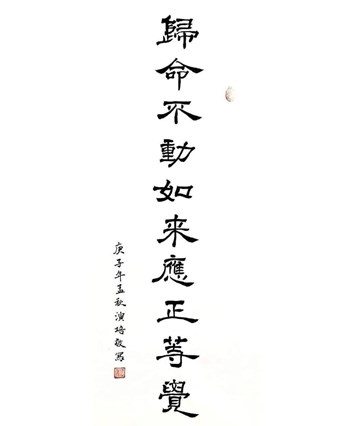 歸命不動如来應正等覺
庚子年孟秋演培敬寫